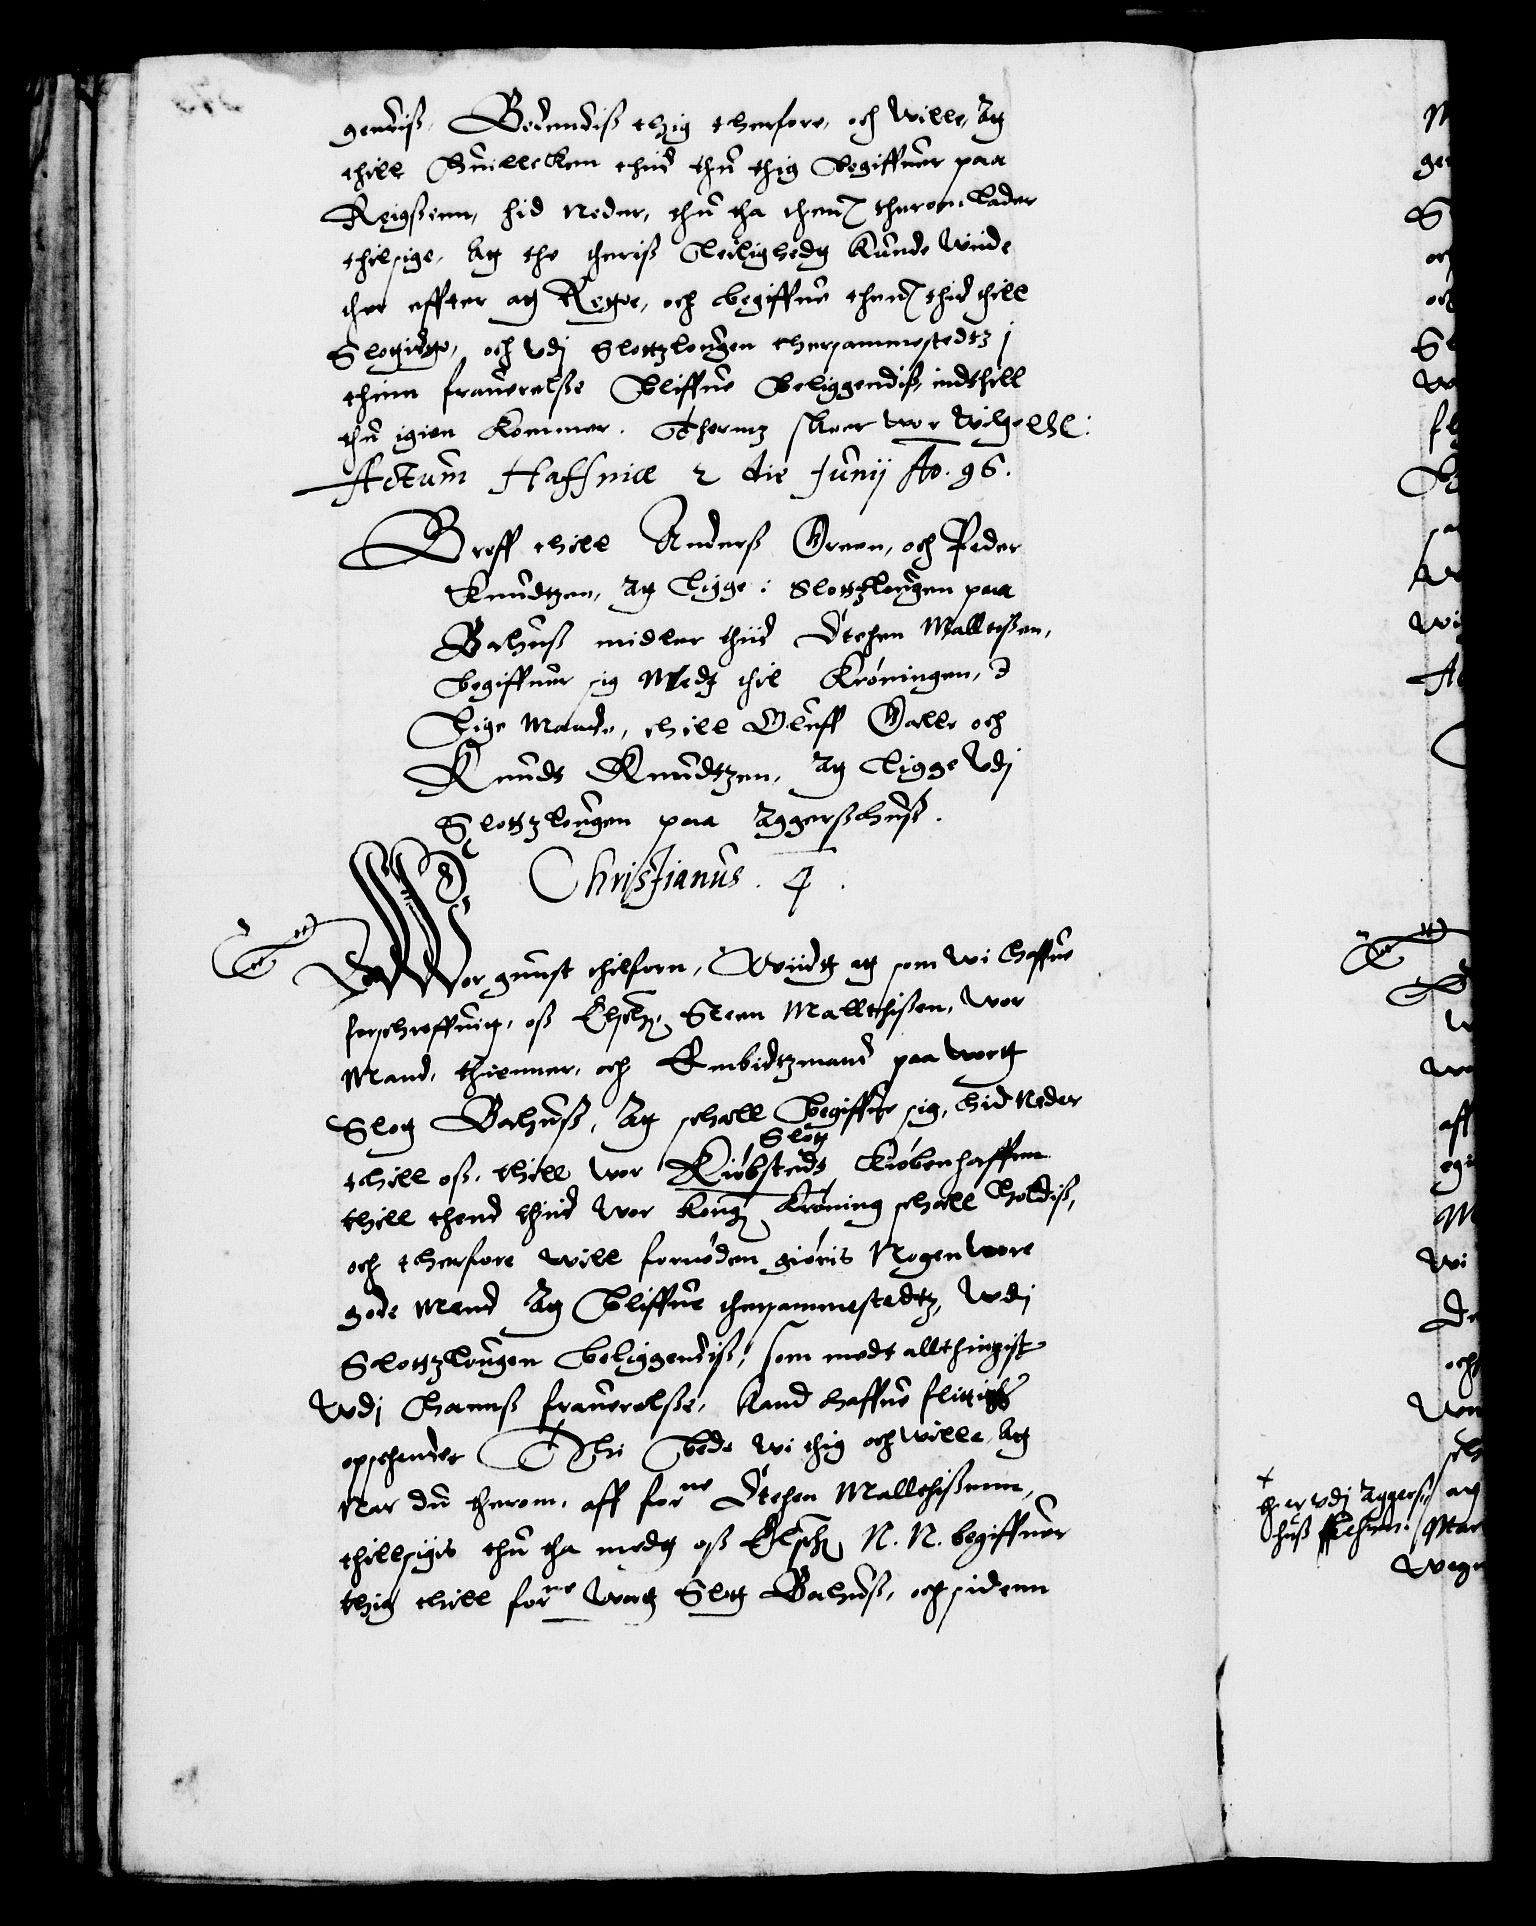 gendiß. Bedendiß thig therfore, och Wille, Ag
thill huilleken thiid thu thig begiffuer paa
Reigßenn, hid Neder, thu tha thenom therom lader
thilsige, Ag the theris Leilighedtz kunde Wiide
ther effter ag Rette, och begiffue thenom thid thill
Slottidt, och Vdj Slottzlougen thersammestedtz j
thinn frauerelße bliffue beliggendiß, indthill
thu igien kommer. Thermz skeer wor Wilge
Actum Haffniæ 2 die Junij Ao. 96.
Breff thill Anderß Green, och Peder
Knudtzen, Ag Ligge i Slottzlougen paa
Bahuß midler thiid Stehen Malteßen,
begiffuer sig Nedtz thil Kröningen,
Lige Maade, thill Oluff Galle och
Knudt Knudtzen, Ag Ligge Vdj
Slottzlougen paa Aggerßhuß.
Christianus. 4.
Wor gunst thilforn, Wiidtz ag som wi haffue
forschreffuitt, oß Elschel. Steen Malthißen, Wor
Mand, thienner, och Embidtzmand paa Wortt
Slott Bahuß, Ag schall begiffue sig, hid Neder
thill oß. thill Wor Kiöbstedt Slott Kiöbenhaffnn
thill thend thiid Wor Kong. Kröning schall holdiß,
och therfore will fornöden giöris Nogen Wore
gode Mend Ag bliffue thersammestedtz, Wdj
Slottzlougen beliggendiß, som medt allthingist
Wdj hannß frauerelße, kand haffue flittigt
opseender Thi bede Wi thig och Wille, Ag
Nar du therom, aff forne Stehen Malthißenn,
thillsigis thu tha medtz oß Elschel N. N. begiffuer
thig thill forne Wortt Slott Bahuß, och sidenn
ther Vdj Aggers
huß Lehnn.